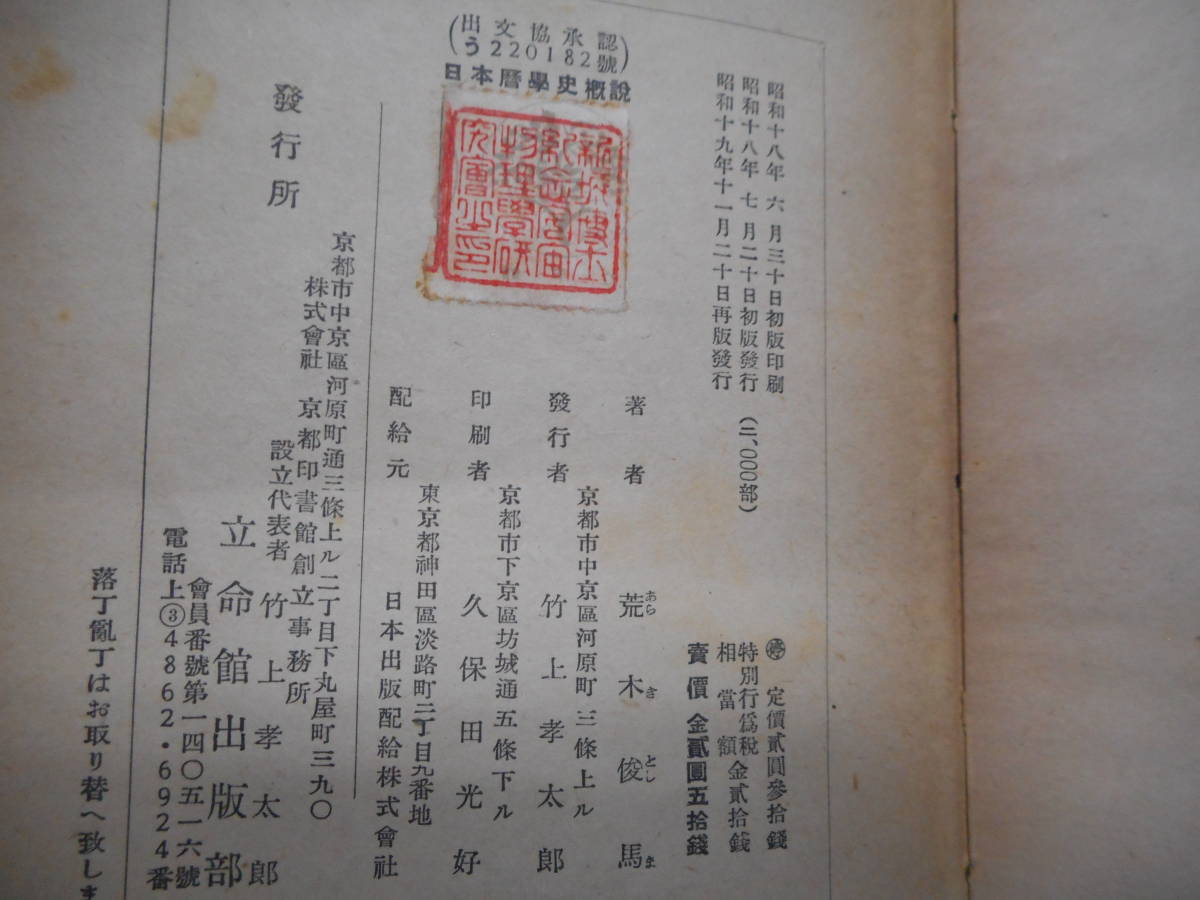 (出文協承認
う220182號)
日本曆學史概說
新城博士
記念宇宙
物理學研
究會之印
昭和十八年 六月三十日初版印刷
昭和十八年 七月二十日初版發行
昭和十九年十一月二十日再版發行
(二、〇〇〇部)
㊡ 定價貳圓參拾錢
特別行爲稅
相當額 金貳拾錢
賣價 金貳圓五拾錢
著者 荒木俊馬
あらきとしま
京都市中京區河原町三條上ル
發行者 竹上孝太郎
京都市下京區坊城通五條下ル
印刷者 久保田光好
東京都神田區淡路町二丁目九番地
配給元 日本出版配給株式會社
發行所
京都市中京區河原町通三條上ル二丁目下丸屋町三九〇
株式會社 京都印書館創立事務所
設立代表者 竹上孝太郎
立命館出版部
會員番號第一四〇五一六號
電話上③4862・6924番
落丁亂丁はお取り替へ致しま